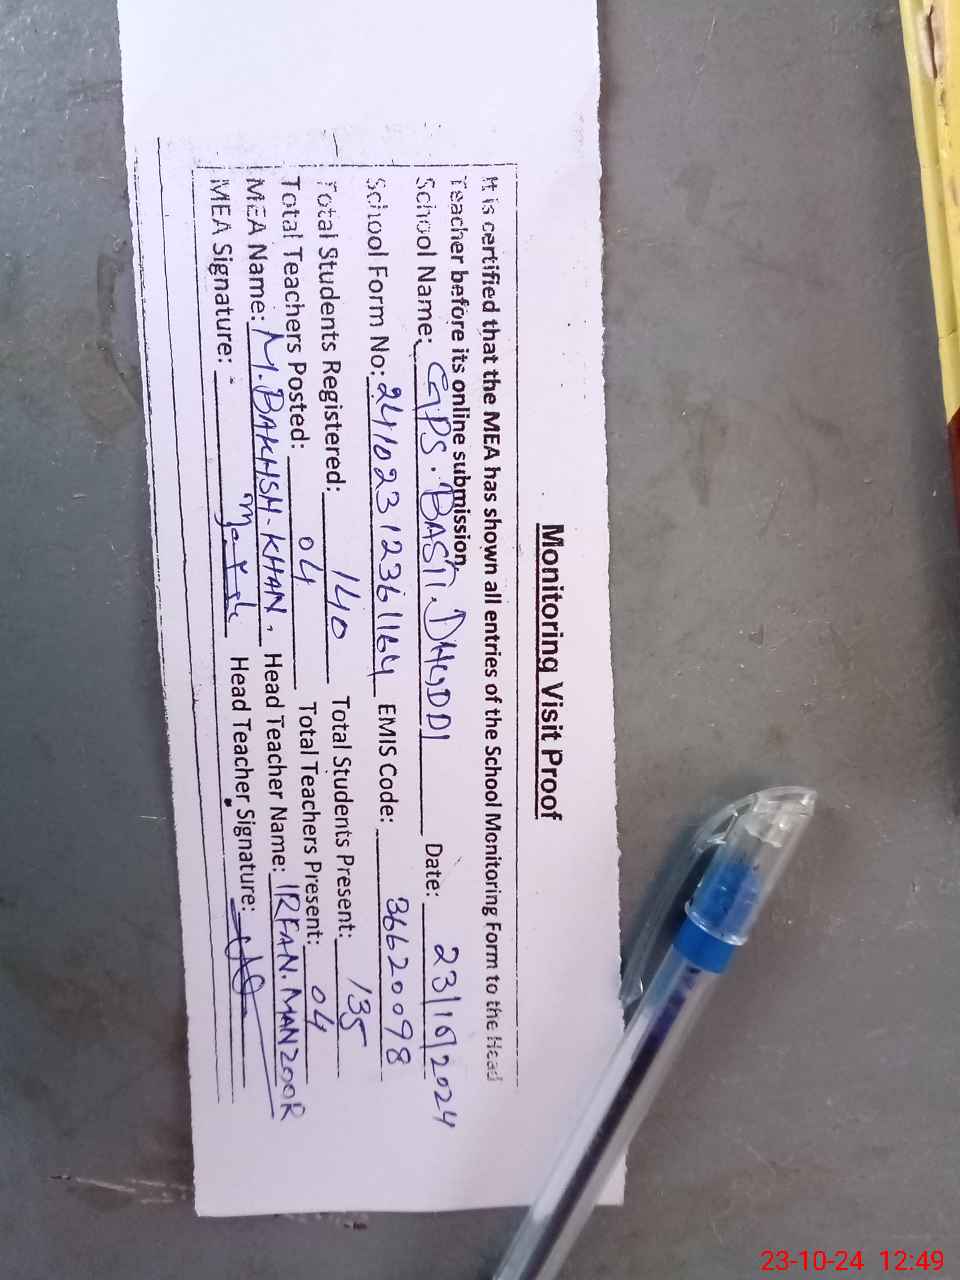 Monitoring Visit Proof
It is certified that the MEA has shown all entries of the School Monitoring Form to the Head
Teacher before its online submission.
School Name: GPS. BASTI. DHGDDI Date: 23/10/2024
School Form No: 24102312361164 EMIS Code: 36620098
Total Students Registered: 140 Total Students Present: 135
Total Teachers Posted: 04 Total Teachers Present: 04
MEA Name: M. BAKHSH. KHAN. Head Teacher Name: IRFAN. MANZOOR
MEA Signature: Head Teacher Signature:
23-10-24 12:49